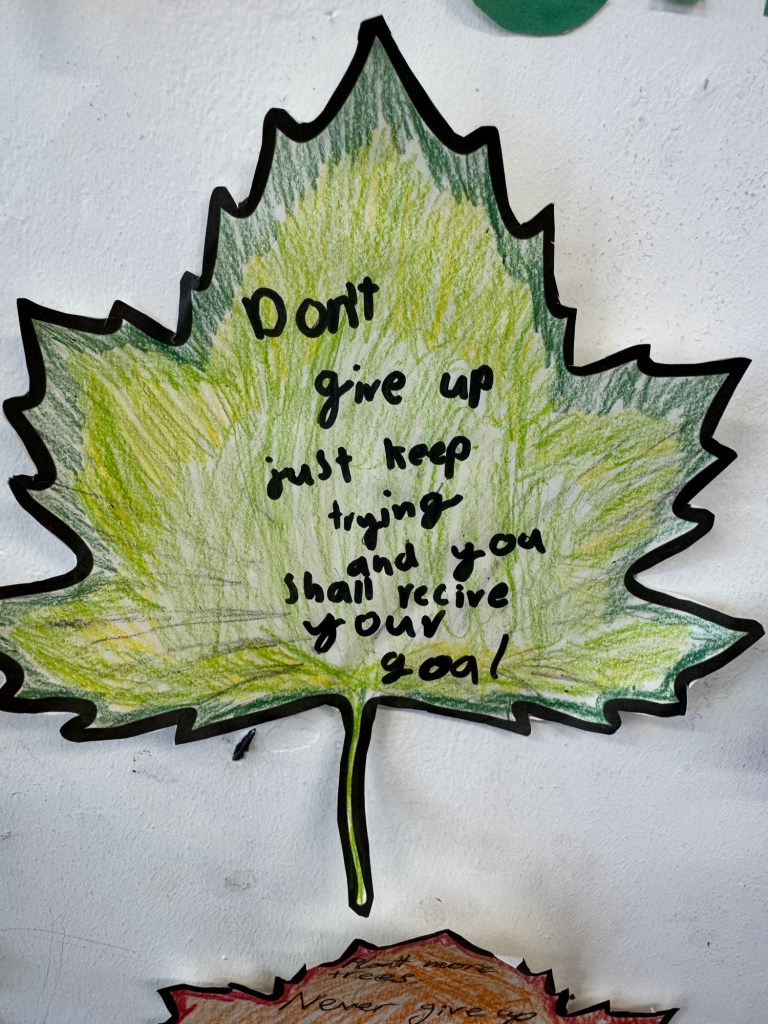 Don't
give up
just keep
trying
and you
shall recive
your
goal
Plant more
trees
Never give up